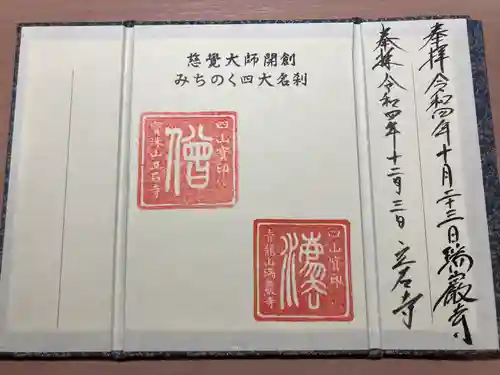 慈覺大師開創
みちのく四大名刹
四山寳印
僧
寳珠山立石寺
四山寳印
灋
青龍山瑞巖寺
奉拝 令和四年十月二十三日 瑞巖寺
奉拝 令和四年十二月三日 立石寺